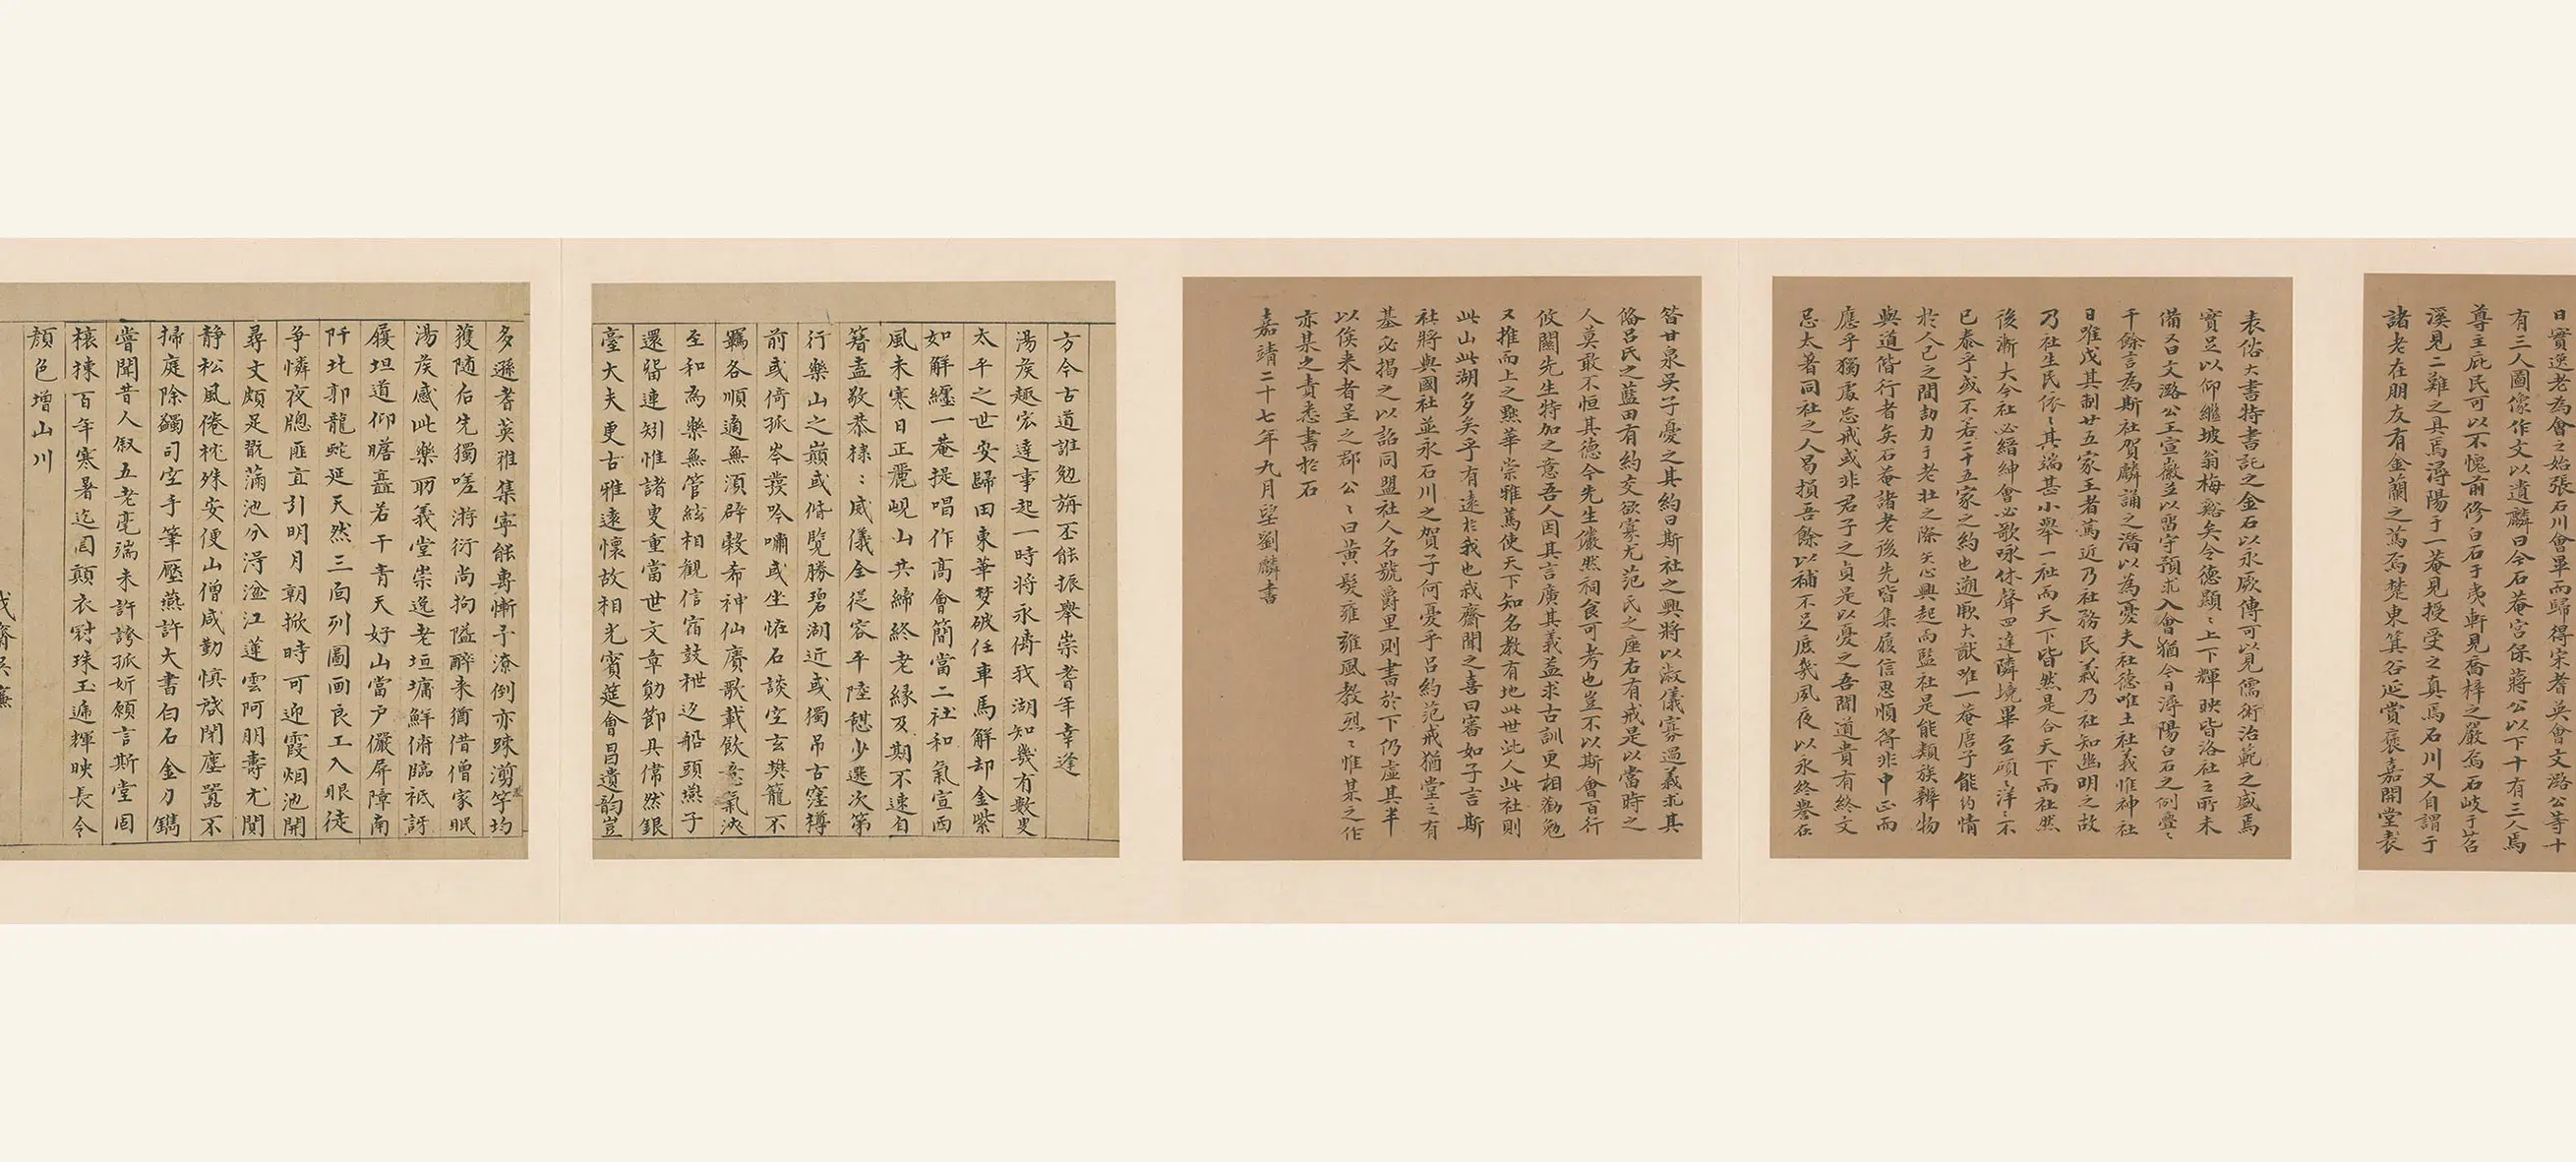 日實逸老為會之始張石川會畢而歸得宋耆英會文潞公等十
有三人圖像作文以遺麟曰今石菴宮保蔣公以下十有三人焉
尊主庇民可以不愧前修白石于夷軒見喬梓之嚴焉石岐于苕
溪見二難之具焉潯陽于一菴見授受之真焉石川又自謂于
諸老在朋友有金蘭之篤焉楚東箕谷延賞褒嘉開堂表
表俗大書特書記之金石以永厥傳可以見儒術治範之盛焉
實足以仰繼坡翁梅谿矣今德顯〻上下輝映皆洛社之所未
備又曰文潞公王宣徽並以留守預求入會猶今日潯陽白石之例亹〻
千餘言為斯社賀麟誦之潛以為憂夫社德唯土社義惟神社
日唯戊其制廿五家王者蒍近乃社務民義乃社知幽明之故
乃社生民依〻其端甚小舉一社而天下皆然是合天下而社然
後漸大今社必縉紳會必歌咏休聲四達隣境畢至碩〻洋〻不
已泰乎或不若二十五家之約也遡厥大猷唯一菴唐子能約情
於人己之間劼力于老壯之際矢心興起而監社是能類族辨物
與道偕行者矣石菴諸老後先皆集履信思順得非中正而
應乎獨處忘戒或非君子之貞是以憂之吾聞道貴有終文
忌太著同社之人曷損吾餘以補不足庶幾夙夜以永終譽在
昔甘泉吳子憂之其約曰斯社之興將以淑儀寡過義求其
俻呂氏之藍田有約交欲寡尤范氏之座右有戒是以當時之
人莫敢不恒其德今先生儼然祠食可考也豈不以斯會百行
攸關先生特加之意吾人因其言廣其義益求古訓更相勸勉
又推而上之㸃華崇雅篤使天下知名教有地此世此人此社則
此山此湖多矣乎有遠於我也戒齋聞之喜曰審如子言斯
社將與國社並永石川之賀子何憂乎呂約范戒猶堂之有
基必揭之以詔同盟社人名號爵里則書於下仍虛其半
以俟来者呈之郡公〻曰黃髮雍雍風教烈〻惟某之作
亦某之責悉書於石
嘉靖二十七年九月望劉麟書
方今古道誰勉旃丕能振舉崇耆年幸逢
湯侯趣宏達事起一時將永傳我湖知幾有數叟
太平之世安歸田東華梦破任車馬解却金紫
如解纏一菴提唱作高會簡當二社和氣宣西
風未寒日正麗峴山共締終老緣及期不速自
簪盍敬恭棣〻威儀全從容平陸憩少選次第
行樂山之巔或脩覽勝碧湖近或獨吊古窪樽
前或倚孤岑發吟嘯或坐恠石談空玄樊籠不
羈各順適無須辟穀希神仙賡歌載飲意氣浹
至和為樂無管絃相観信宿鼓枻近船頭燕子
還留連矧惟諸叟重當世文章勛節具偉然銀
臺大夫更古雅遠懷故相光賓筵會昌遺韵豈
多遜耆英雅集寧能專慚予潦倒亦踈漫竽均
蒦随后先獨嗟游衍尚拘隘醉来猶借僧家眠
湯侯感此樂刱義堂崇逸老垣墉鮮俯臨祗訝
履坦道仰瞻矗若干青天好山當户儼屏障南
阡北郭龍蛇延天然三面列圖画良工入眼徒
争憐夜牕匪直引明月朝掀時可迎霞烟池開
尋丈頗足翫滿池分淂湓江蓮雲阿朋壽尤閴
靜松風倦枕殊安便山僧咸勤慎啓閉塵嚣不
掃庭除蠲司空手筆壓燕許大書白石金刀鐫
嘗聞昔人叙五老毫端未許誇孤妍願言斯堂固
榱揀百年寒暑迄囙顛衣冠珠玉遞輝映長令
顏色增山川
戒齋吳廉